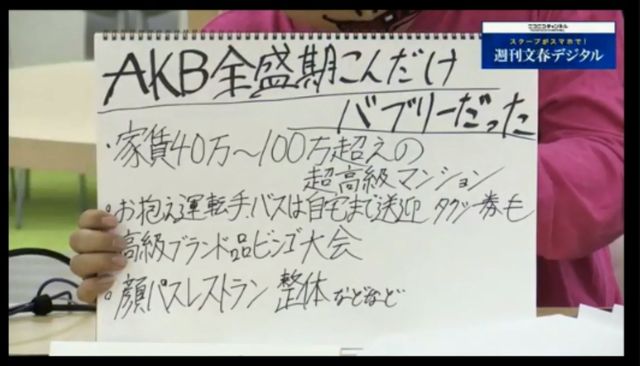 ニコニコチャンネル
スクープがスマホで!
週刊文春デジタル
AKB全盛期こんだけ
バブリーだった
・家賃40万～100万超えの
超高級マンション
・お抱え運転手、バスは自宅まで送迎 タクシー券も
高級ブランド品ビンゴ大会
・顔パスレストラン 整体などなど